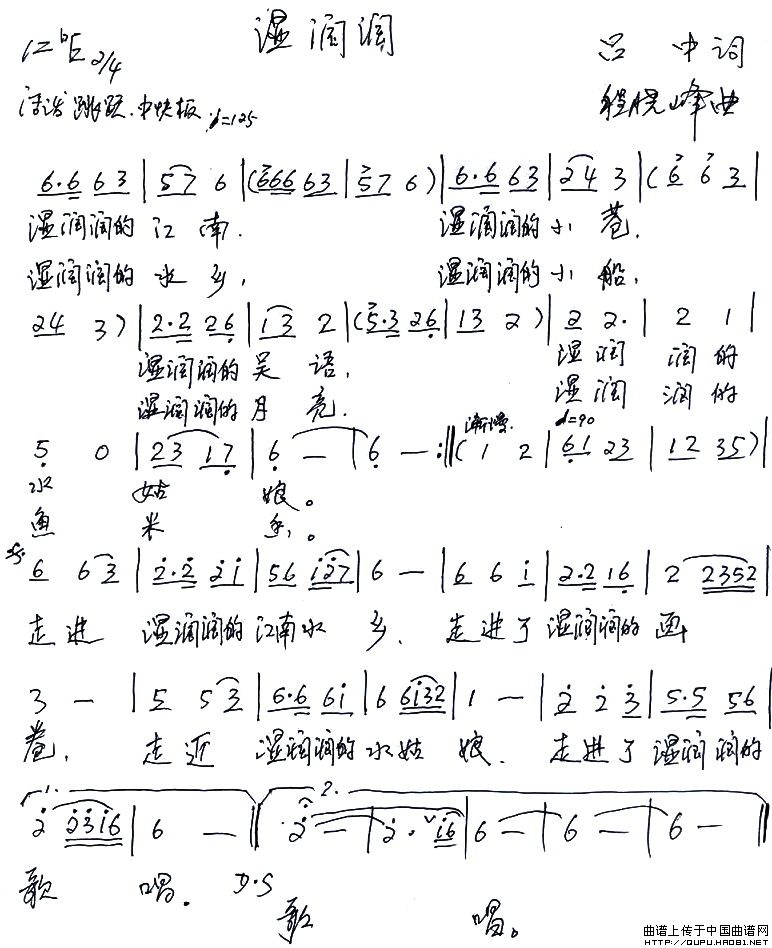 湿润润
1=♭E 2/4 吕中词
活泼 跳跃.中快板 ♩=125 程晓峰曲
6.6 63 | 57 6 | (666 63 | 57 6) | 6.6 63 | 24 3 | (6 6 3 |
湿润润的江南. 湿润润的小巷.
湿润润的水乡, 湿润润的小船,
24 3) | 2.2 26 | 13 2 | (5.3 26 | 13 2) | 2 2. | 2 1 |
湿润润的吴语, 湿润润的
湿润润的月亮. 湿润润的
渐慢. ♩=90
5 0 | 23 17 | 6 — | 6 — :‖ ( 1 2 | 61 23 | 12 35) |
水姑娘。
鱼米乡。
6 63 | 2.2 21 | 56 127 | 6 — | 6 6 1 | 2.2 16 | 2 2352 |
走进 湿润润的江南水乡. 走进了湿润润的画
3 — | 5 53 | 6.6 61 | 6 6132 | 1 — | 2 2 3 | 5.5 56 |
卷, 走近 湿润润的水姑娘. 走进了湿润润的
1. 2.
2 2316 | 6 — ‖ 2 — | 2. ∨16 | 6 — | 6 — | 6 — ‖
歌唱. D.S
歌唱。
曲谱上传于中国曲谱网
HTTP://QUPU.HAO81.NET